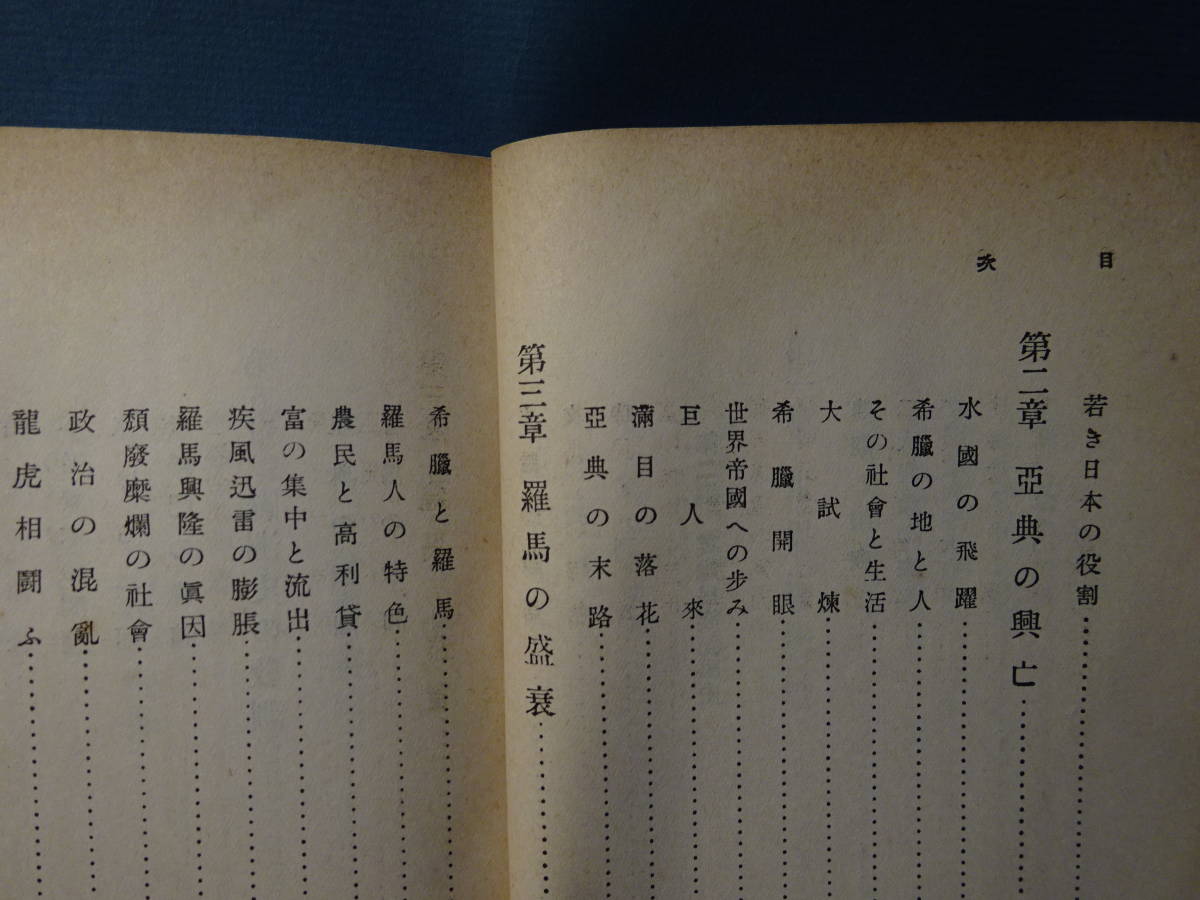 目次
若き日本の役割
第二章 亞典の興亡
水國の飛躍
希臘の地と人
その社會と生活
大試煉
希臘開眼
世界帝國への歩み
巨人來
滿目の落花
亞典の末路
第三章 羅馬の盛衰
希臘と羅馬
羅馬人の特色
農民と高利貸
富の集中と流出
疾風迅雷の膨脹
羅馬興隆の眞因
頽廢糜爛の社會
政治の混亂
龍虎相鬪ふ